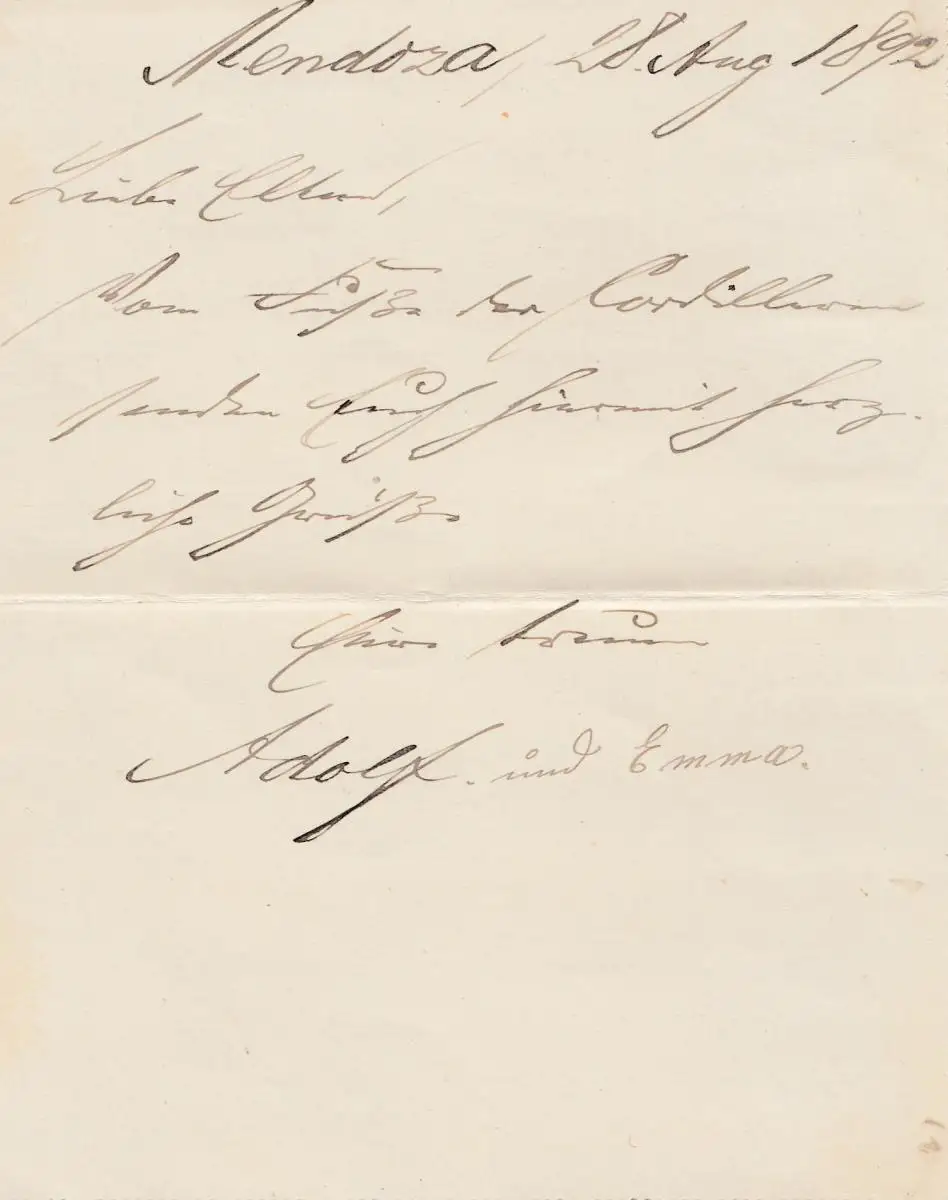 Mendoza, 28. Aug 1892
Liebe Eltern,
Vom Fuße der Cordilleren
senden Euch hiermit herz-
liche Grüße
Eure treuen
Adolf. und Emma.